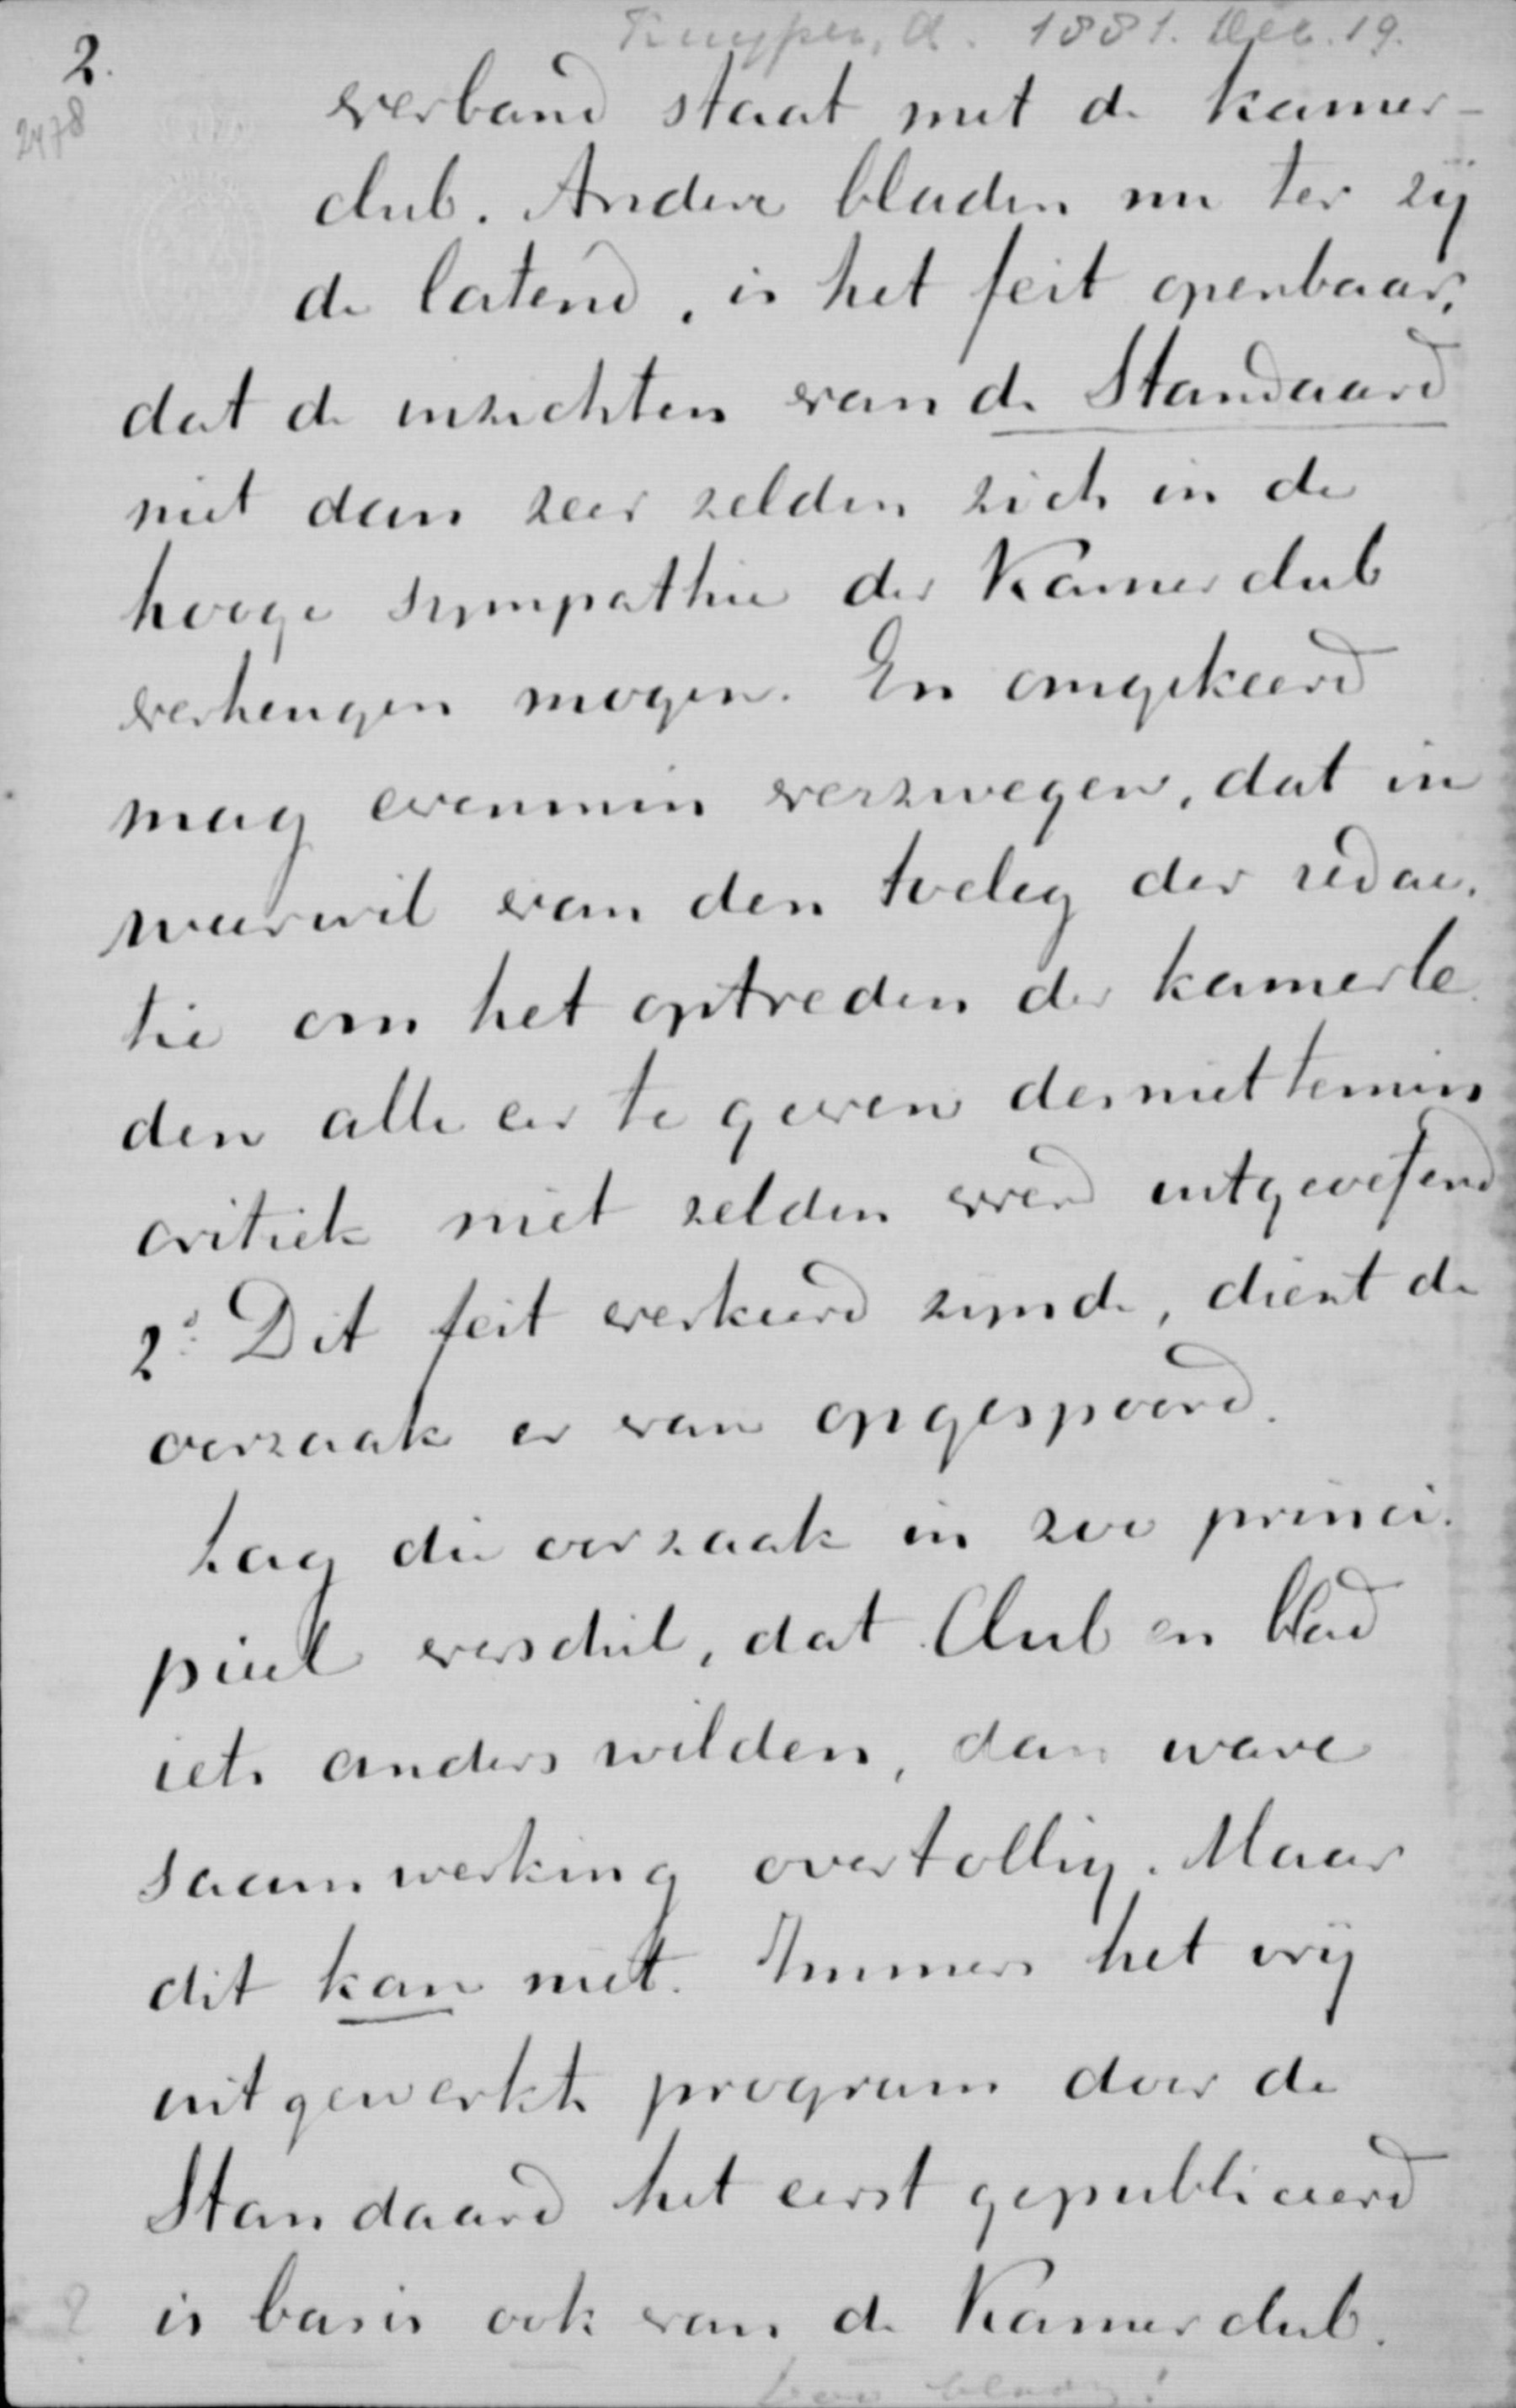 Kuyper, A. 1881. Dec. 19.
2.
2478
verband staat met de kamer-
club. Andere bladen nu ter zij
de latend, is het feit openbaar,
dat de inzichten van de Standaard
niet dan zeer zelden zich in de
hooge sympathie der Kamerclub
verheugen mogen. En omgekeerd
mag evenmin verzwegen, dat in
weerwil van den toeleg der redac.
tie om het optreden der kamerle
den alle eer te geven desniettemin
critiek niet zelden werd uitgeoefend
2º. Dit feit verkeerd zijnde, dient de
oorzaak er van opgespoord.
Lag die oorzaak in zoo princi.
pieel verschil, dat Club en blad
iets anders wilden, dan ware
saamwerking overtollig. Maar
dit kan niet. Immers het vrij
uitgewerkte program door de
Standaard het eerst gepubliceerd
is basis ook van de Kamerclub.
?